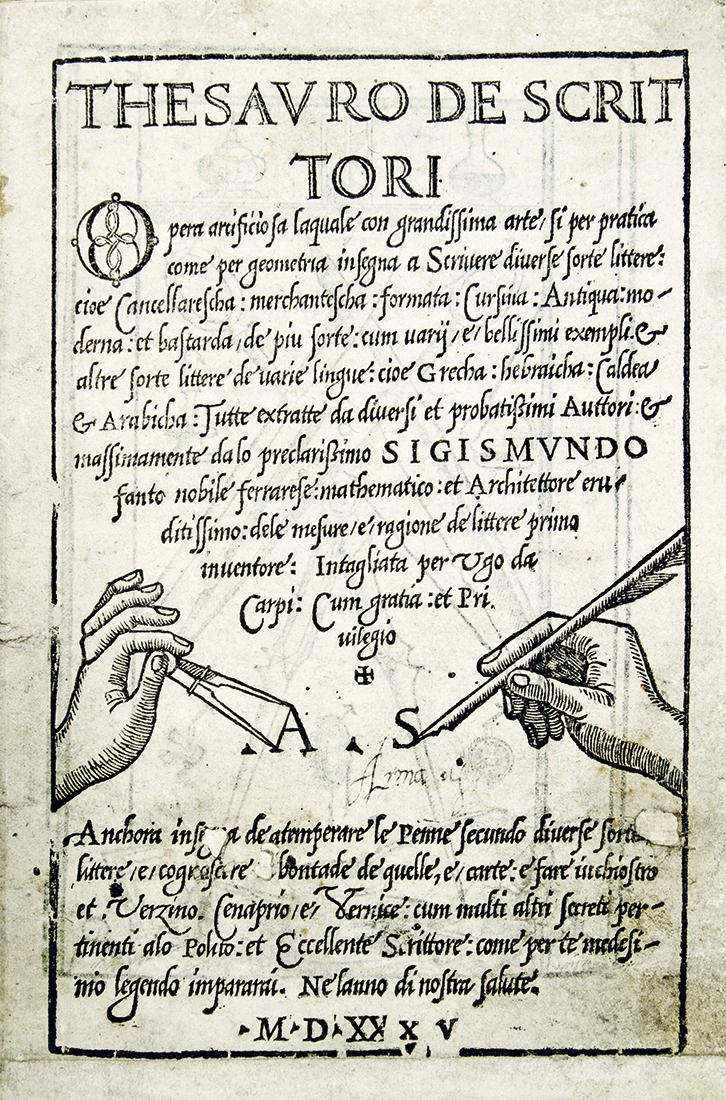 THESAVRO DE SCRIT
TORI
Opera artificiosa laquale con grandissima arte, si per pratica
come per geometria insegna a Scrivere diverse sorte littere:
cioe Cancellarescha: merchantescha: formata: Cursiva: Antiqua: mo-
derna: et bastarda, de piu sorte: cum varij, e, bellissimi exempli. &
altre sorte littere de varie lingue: cioe Grecha: hebraicha: Caldea
& Arabicha: Tutte extratte da diversi et probatißimi Auttori: &
massimamente dalo preclarißimo SIGISMVNDO
fanto nobile ferrarese: mathematico: et Architettore eru-
ditissimo: dele mesure, e, ragione de littere primo
inventore: Intagliata per Ugo da
Carpi: Cum gratia: et Pri.
vilegio
A S
Anchora insegna de atemperare le Penne secundo diverse sorte
littere, e, cognoscere bontade de quelle, e, carte: e fare inchiostro
et Verzino. Cenaprio, e, Vernice: cum multi altri secreti per-
tinenti alo Polito: et Eccellente Scrittore: come per te medesi-
mo legendo impararai. Ne lanno di nostra salute.
·M·D·XX x V